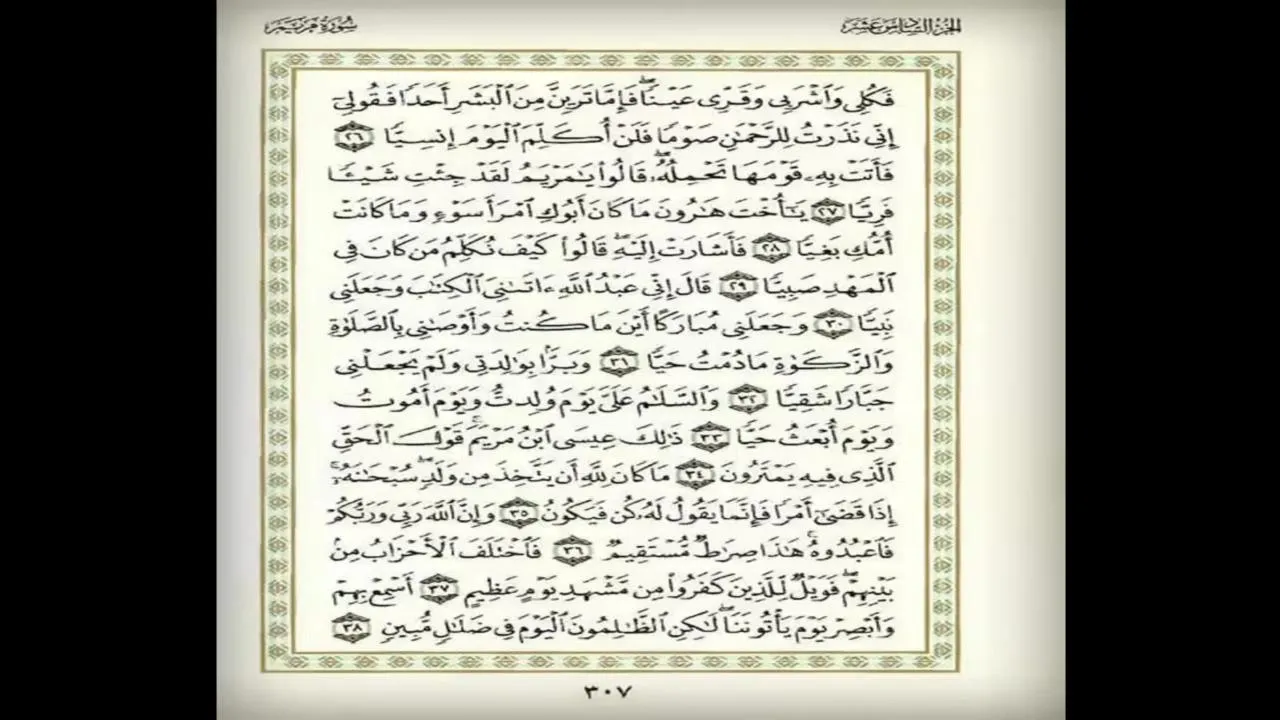 الجزء السادس عشر
سورة مريم
فَكُلِي وَٱشۡرَبِي وَقَرِّي عَيۡنٗاۖ فَإِمَّا تَرَيِنَّ مِنَ ٱلۡبَشَرِ أَحَدٗا فَقُولِيٓ
إِنِّي نَذَرۡتُ لِلرَّحۡمَٰنِ صَوۡمٗا فَلَنۡ أُكَلِّمَ ٱلۡيَوۡمَ إِنسِيّٗا ٢٦
فَأَتَتۡ بِهِۦ قَوۡمَهَا تَحۡمِلُهُۥۖ قَالُواْ يَٰمَرۡيَمُ لَقَدۡ جِئۡتِ شَيۡـٔٗا
فَرِيّٗا ٢٧ يَٰٓأُخۡتَ هَٰرُونَ مَا كَانَ أَبُوكِ ٱمۡرَأَ سَوۡءٖ وَمَا كَانَتۡ
أُمُّكِ بَغِيّٗا ٢٨ فَأَشَارَتۡ إِلَيۡهِۖ قَالُواْ كَيۡفَ نُكَلِّمُ مَن كَانَ فِي
ٱلۡمَهۡدِ صَبِيّٗا ٢٩ قَالَ إِنِّي عَبۡدُ ٱللَّهِ ءَاتَىٰنِيَ ٱلۡكِتَٰبَ وَجَعَلَنِي
نَبِيّٗا ٣٠ وَجَعَلَنِي مُبَارَكًا أَيۡنَ مَا كُنتُ وَأَوۡصَٰنِي بِٱلصَّلَوٰةِ
وَٱلزَّكَوٰةِ مَا دُمۡتُ حَيّٗا ٣١ وَبَرَّۢا بِوَٰلِدَتِي وَلَمۡ يَجۡعَلۡنِي
جَبَّارٗا شَقِيّٗا ٣٢ وَٱلسَّلَٰمُ عَلَيَّ يَوۡمَ وُلِدتُّ وَيَوۡمَ أَمُوتُ
وَيَوۡمَ أُبۡعَثُ حَيّٗا ٣٣ ذَٰلِكَ عِيسَى ٱبۡنُ مَرۡيَمَۚ قَوۡلَ ٱلۡحَقِّ
ٱلَّذِي فِيهِ يَمۡتَرُونَ ٣٤ مَا كَانَ لِلَّهِ أَن يَتَّخِذَ مِن وَلَدٖۖ سُبۡحَٰنَهُۥٓۚ
إِذَا قَضَىٰٓ أَمۡرٗا فَإِنَّمَا يَقُولُ لَهُۥ كُن فَيَكُونُ ٣٥ وَإِنَّ ٱللَّهَ رَبِّي وَرَبُّكُمۡ
فَٱعۡبُدُوهُۚ هَٰذَا صِرَٰطٞ مُّسۡتَقِيمٞ ٣٦ فَٱخۡتَلَفَ ٱلۡأَحۡزَابُ مِنۢ
بَيۡنِهِمۡۖ فَوَيۡلٞ لِّلَّذِينَ كَفَرُواْ مِن مَّشۡهَدِ يَوۡمٍ عَظِيمٍ ٣٧ أَسۡمِعۡ بِهِمۡ
وَأَبۡصِرۡ يَوۡمَ يَأۡتُونَنَاۖ لَٰكِنِ ٱلظَّٰلِمُونَ ٱلۡيَوۡمَ فِي ضَلَٰلٖ مُّبِينٖ ٣٨
٣٠٧